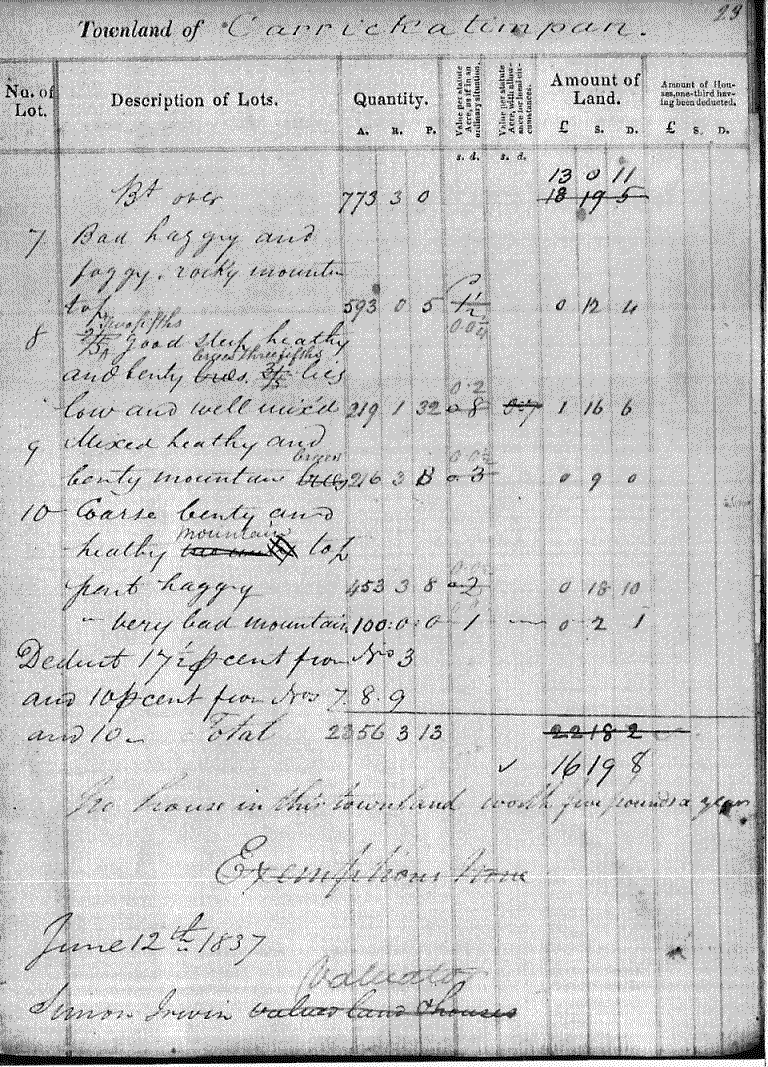 23
Townland of Carrickatimpan.
No. of Lot. Description of Lots. Quantity. Value per statute Acre, as if in an ordinary situation. Value per statute Acre, with allowance for local circumstances. Amount of Land. Amount of Houses, one-third having been deducted.
A. R. P. s. d. s. d. £ S. D. £ S. D.
13 0 11
Bt over 773 3 0 18 19 5
7 Bad haggy and
foggy, rocky mountn
top 593 0 5 1½ 0 12 4
0.0¼
twofifths
8 2/5 good steep heathy
green threefifths
and benty 3/5 lies
0.2
low and well mixd 219 1 32 0 8 0.7 1 16 6
9 Mixed heathy and
green
benty mountain 216 3 0 3 0 9 0
10 Coarse benty and
mountain
heathy top
part haggy 453 3 8 0 2 0 18 10
" very bad mountain 100 0 0 1 0 2 1
Deduct 17½ p cent from No 3
and 10 p cent from Nos 7. 8. 9
and 10 Total 2356 3 13 22 18 2
✓ 16 19 8
No house in this townland worth five pounds a year
Exemptions None
June 12th 1837
Valuator
Simon Irwin valued land & houses